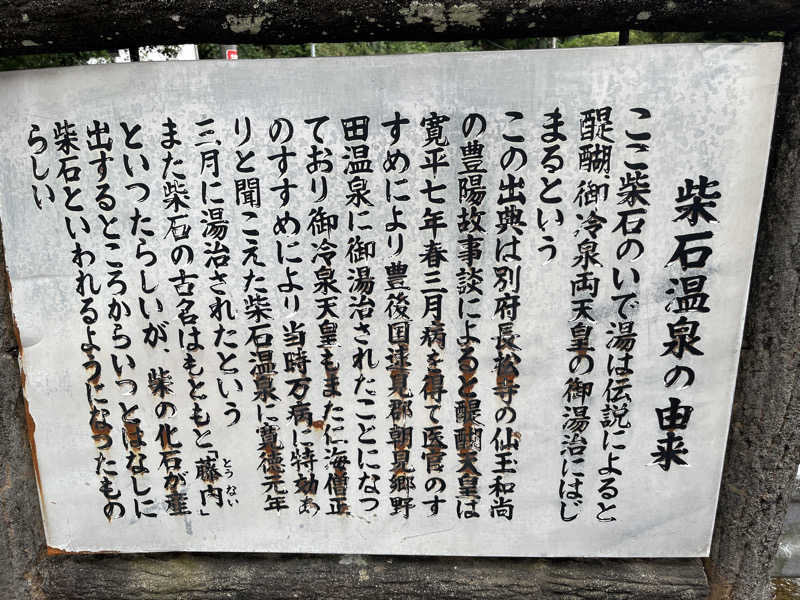 柴石温泉の由来
ここ柴石のいで湯は伝説によると
醍醐御冷泉両天皇の御湯治にはじ
まるという
この出典は別府長松寺の仙玉和尚
の豊陽故事談によると醍醐天皇は
寛平七年春三月病を得て医官のす
すめにより豊後国速見郡朝見郷野
田温泉に御湯治されたことになっ
ており御冷泉天皇もまた仁海僧正
のすすめにより当時万病に特効あ
りと聞こえた柴石温泉に寛徳元年
三月に湯治されたという
また柴石の古名はもともと「藤内」
とうない
といつたらしいが、柴の化石が産
出するところからいつとはなしに
柴石といわれるようになつたもの
らしい